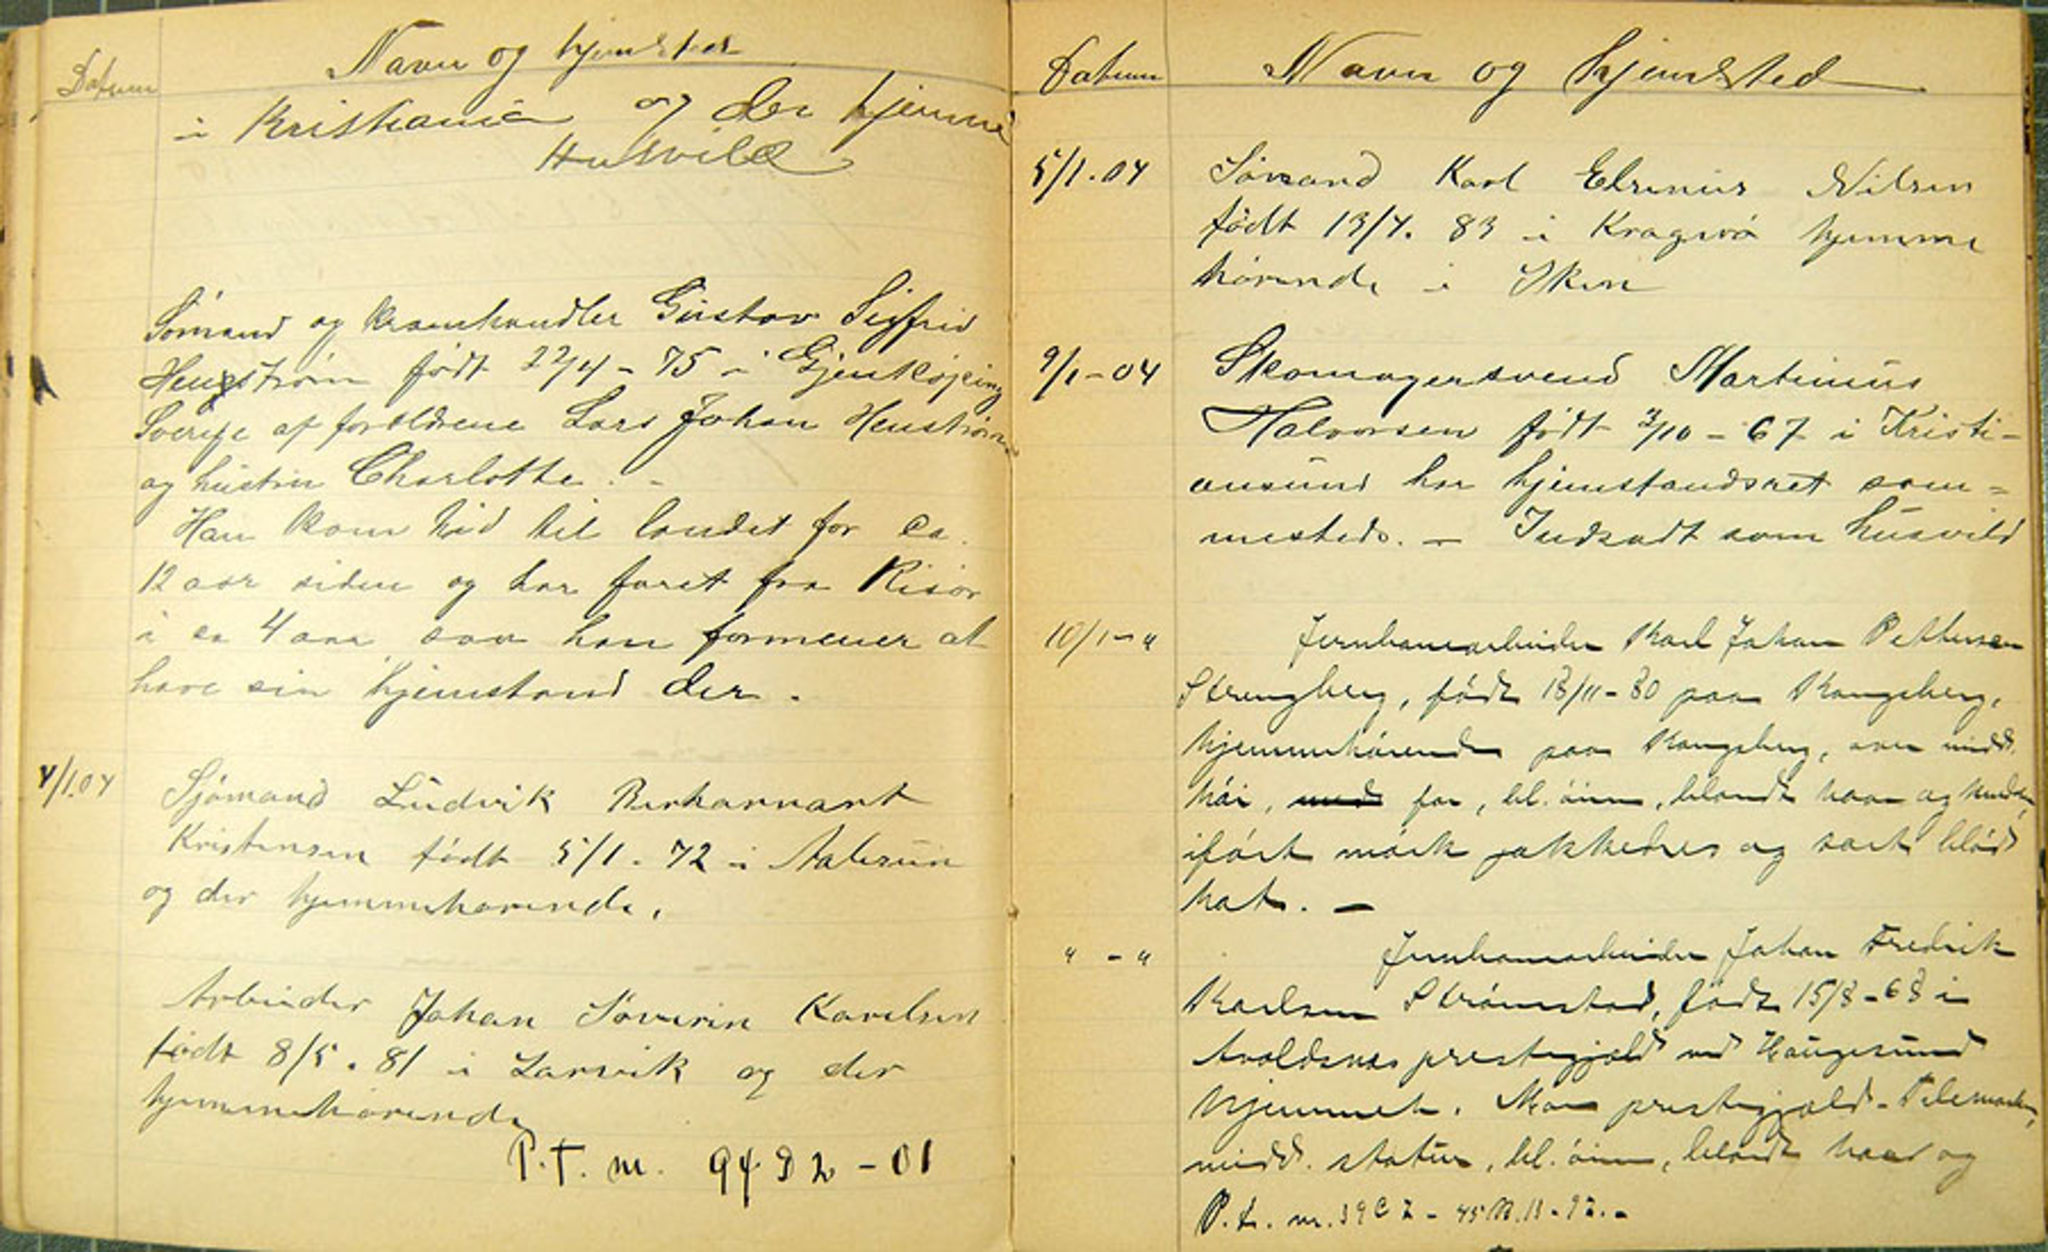 Datum Navn og hjemsted
i Kristiania og der hjemme
Husvild
Sömand og kramhandler Gustav Sigfrid
Hengström født 22/4 - 75 i Gjenkøping
Sverige af forældrene Lars Johan Henström
og hustru Charlotte. -
Han kom hid til landet for ca.
12 aar siden og har faret fra Risör
i ca 4 aar saa han formener at
have sin hjemstand der.
4/1.04 Sjømand Ludvik
Kristensen født 5/1 - 72 i Aalesun
og der hjemmehørende.
Arbeider Johan Søverin Karelsen
født 8/5. 81 i Larvik og der
hjemmehørende
P.T. m. 94 D 2 - 01
Datum Navn og hjemsted
5/1.04 Sømand Karl Elenius Nilsen
født 13/7. 83 i Kragerø hjemme
hørende i Skien
9/1-04 Skomagersvend Martinius
Halvorsen født 3/10 - 67 i Kristi-
ansund har hjemstandsret sam=
mesteds. - Indsadt som husvild
10/1-" Jernbanearbeider Karl Johan Pettersen
Strengberg, födt 18/11-80 paa Kongsberg,
hjemmehörende paa Kongsberg, over midd.
höi, med for, bl. öine, blondt haar og
ifört mörk jakkedres og sort blöd
hat. -
" - " Jernbanearbeider Johan Fredrik
Karlsen Strömstad, födt 15/8-68 i
Avaldsnes prestegjæld ved Haugesund
hjemmeh. Moe prestegjæld - Telemarken,
midd. statur, bl. öine, blondt haar og
P.t. m. 39 C 2 - 45 13-92.-